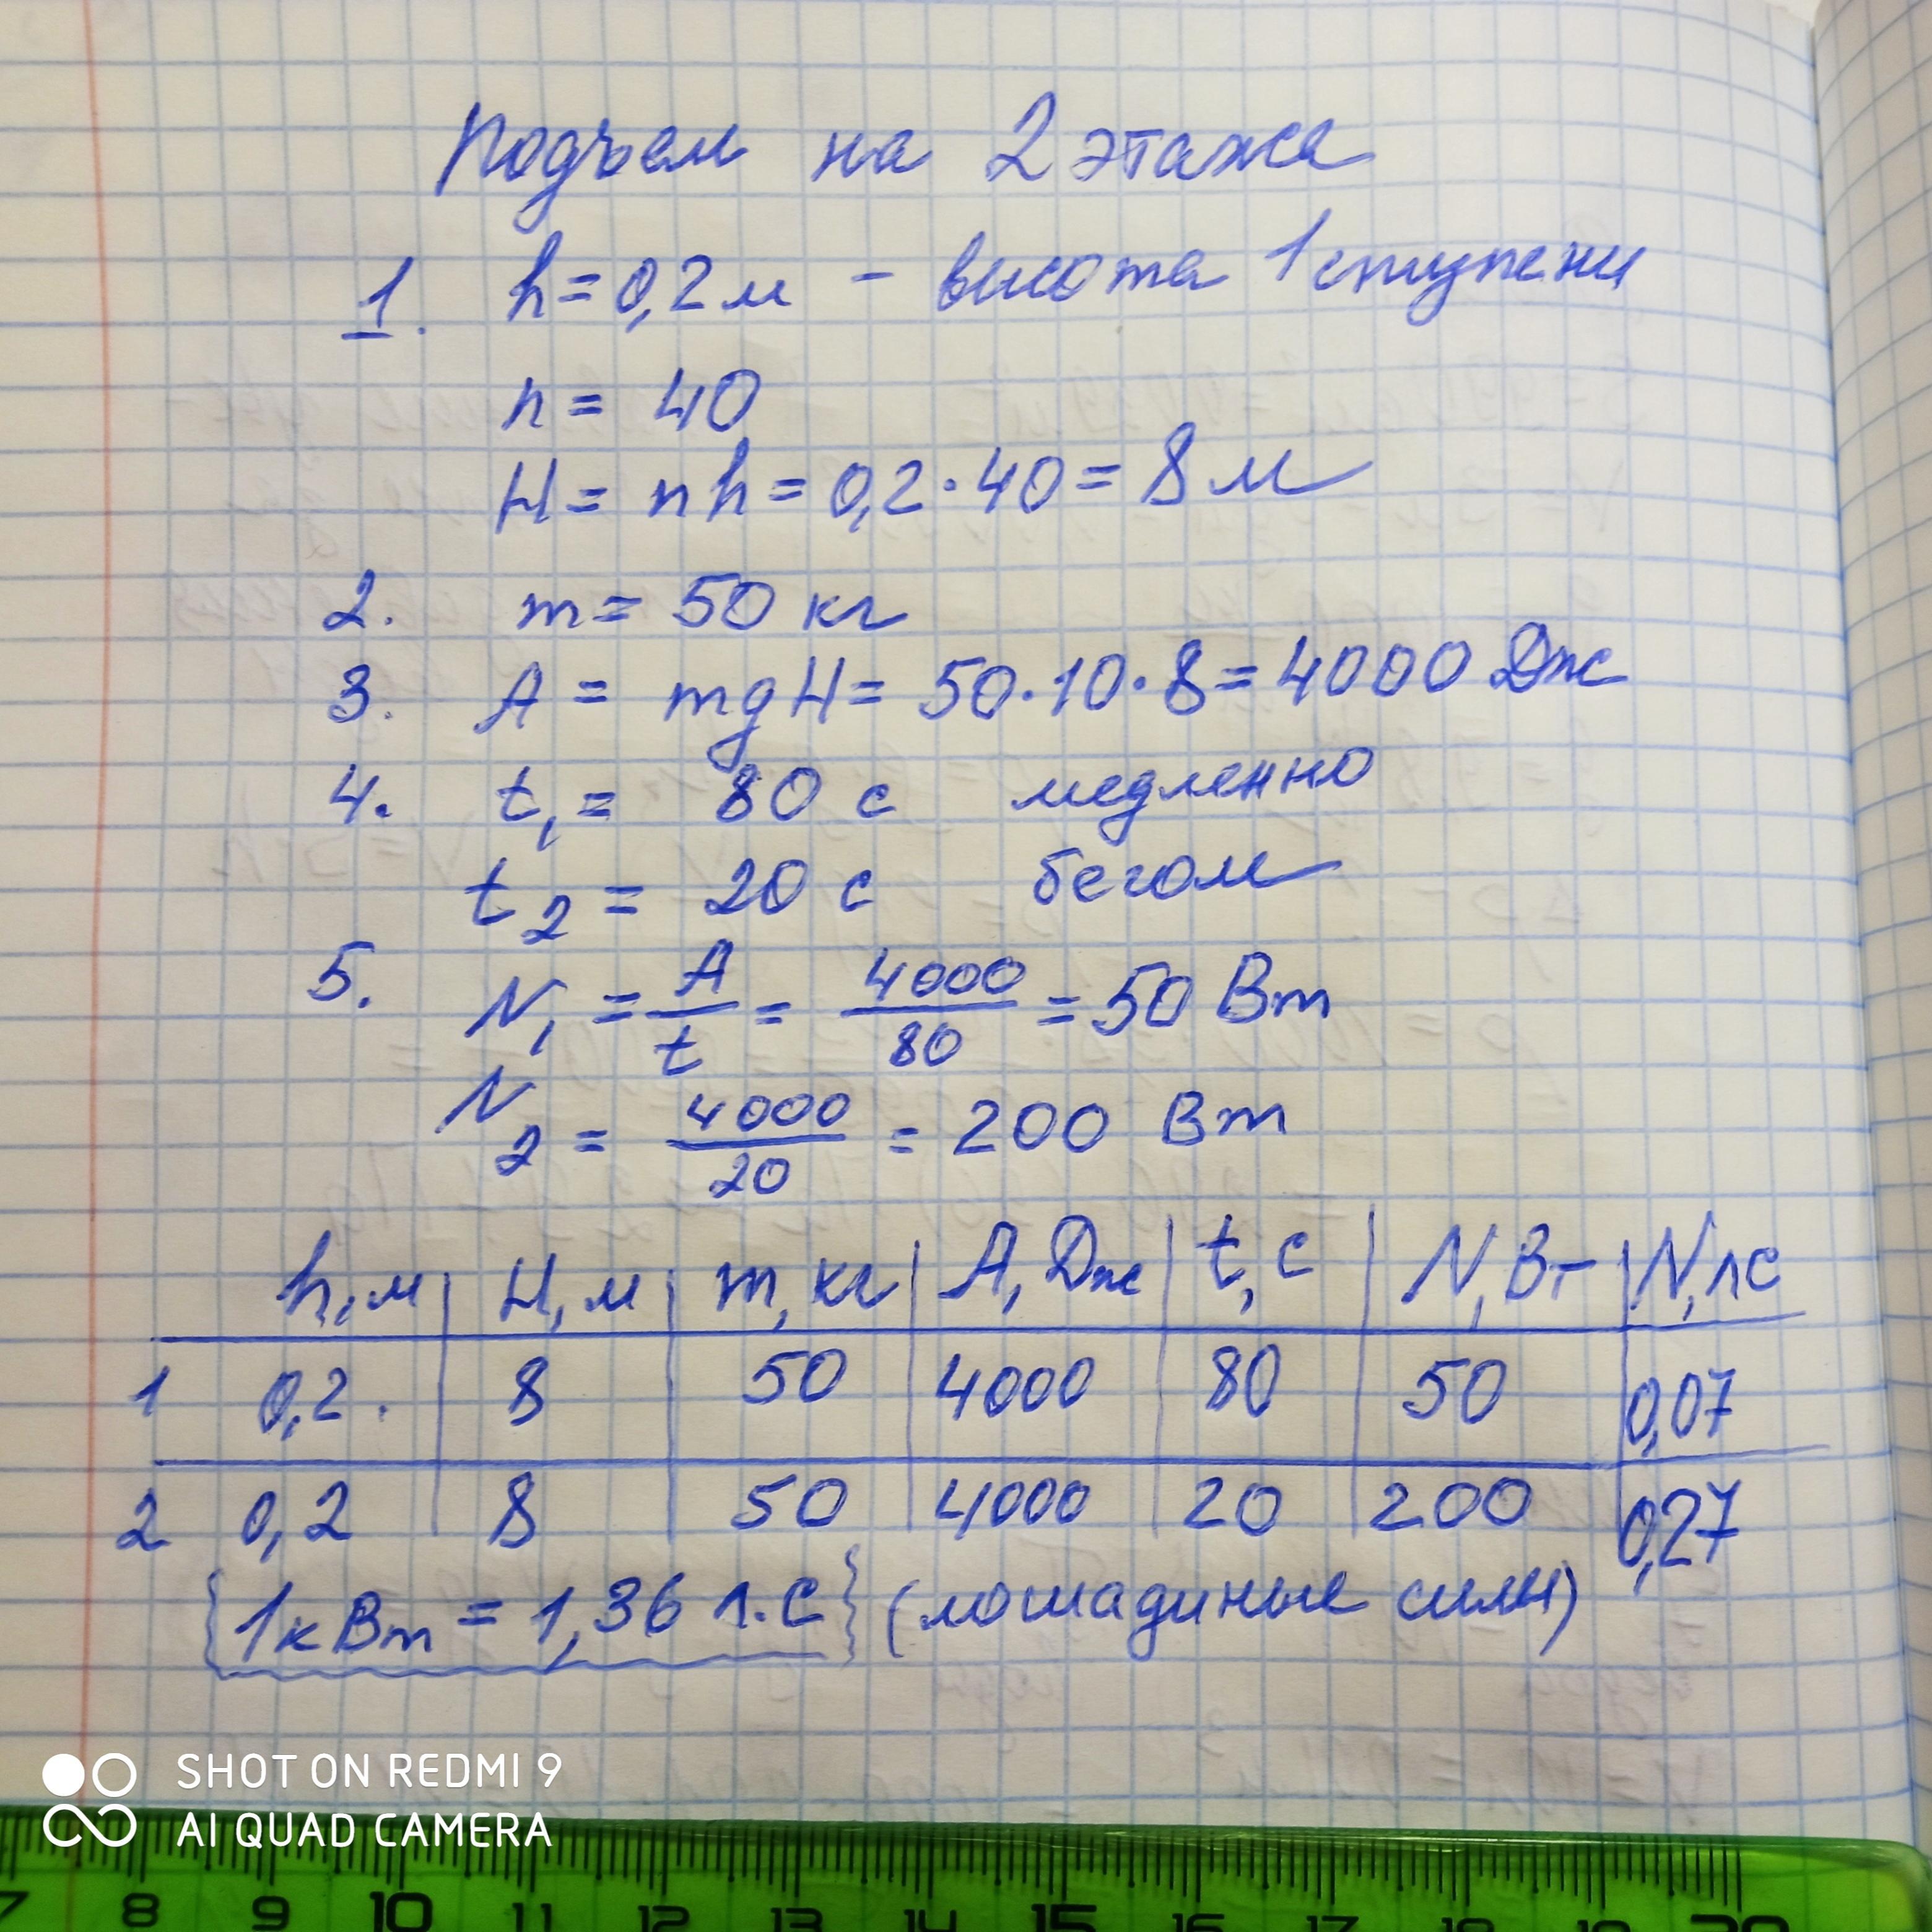 Подъем на 2 этажа
1. h = 0,2 м - высота 1 ступени
n = 40
H = nh = 0,2 · 40 = 8 м
2. m = 50 кг
3. A = mgH = 50 · 10 · 8 = 4000 Дж
4. t₁ = 80 с медленно
t₂ = 20 с бегом
5. N₁ = A/t = 4000/80 = 50 Вт
N₂ = 4000/20 = 200 Вт
h, м | H, м | m, кг | A, Дж | t, с | N, Вт | N, лс
1 0,2 . | 8 | 50 | 4000 | 80 | 50 | 0,07
2 0,2 | 8 | 50 | 4000 | 20 | 200 | 0,27
{1 кВт = 1,36 л.с} (лошадиные силы)
SHOT ON REDMI 9
AI QUAD CAMERA
7 8 9 10 11 12 13 14 15 16 17 18 19 20